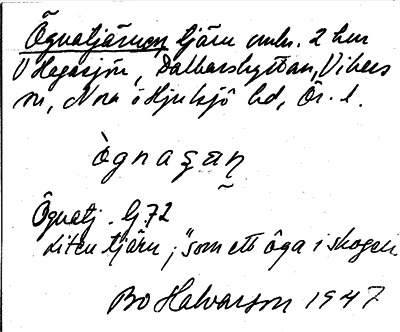 Ögnatjärnen tjärn omkr. 2 km
V Hagasjön, Dalkarshyttan, Vikers
sn, Nora o Hjulsjö hd, Ör. l.
ògnaʂaɳ
Ögnatj. Lj 72
Liten tjärn; "som ett öga i skogen
Bo Halvarson 1947